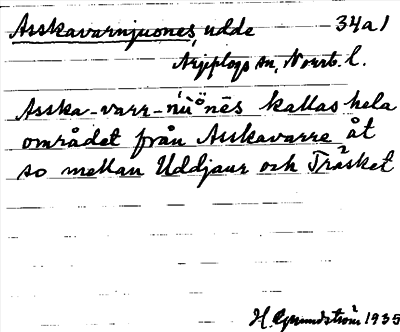 Asskavarnjuones, udde 34a1
Arjeplogs sn, Norrb. l.
Asska-varr-nùònēs kallas hela
området från Asskavarre åt
so mellan Uddjaur och Träsket
H. Grundström 1935